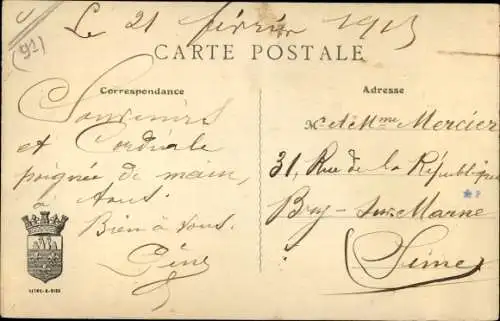 Le 21 février 1915
(92)
CARTE POSTALE
Correspondance
Adresse
Souvenirs
et Cordiale
poignée de main,
à tous.
Bien à vous.
Mr et Mme Mercier
31, Rue de la République
Bry-sur-Marne
(Seine)